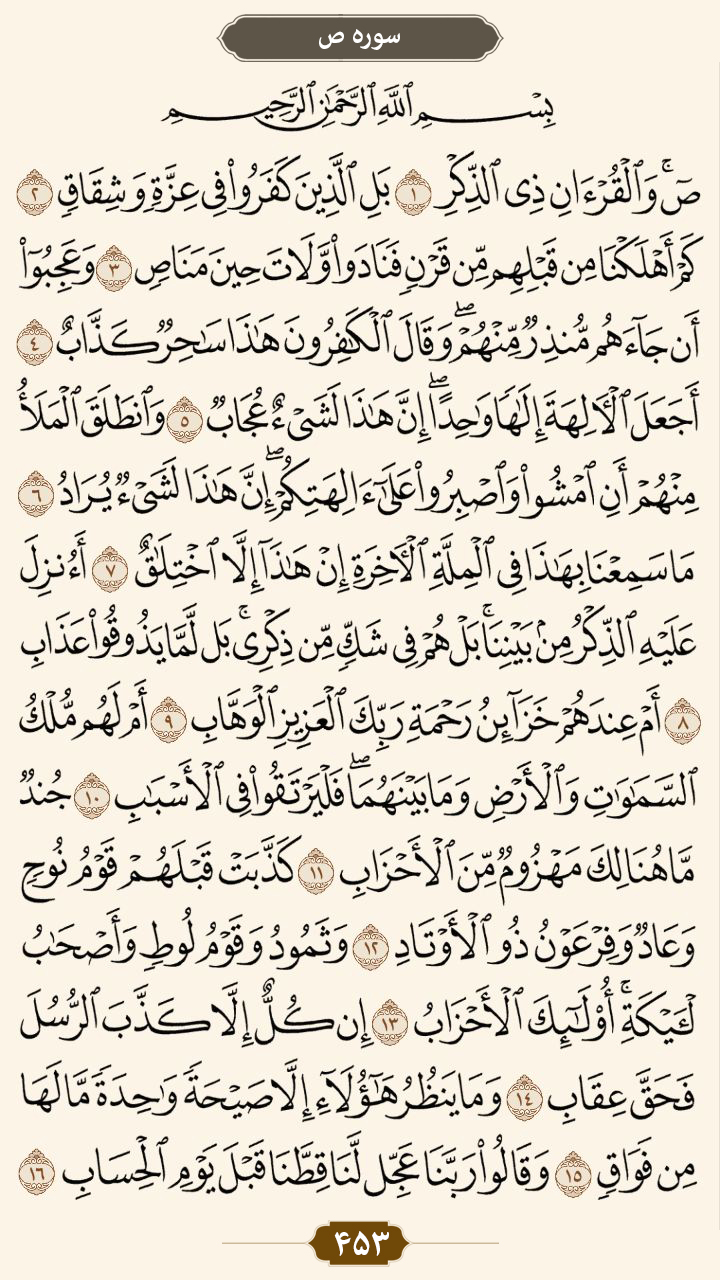 سوره ص
بِسْمِ ٱللَّهِ ٱلرَّحْمَٰنِ ٱلرَّحِيمِ
صٓ ۚ وَٱلْقُرْءَانِ ذِى ٱلذِّكْرِ ١ بَلِ ٱلَّذِينَ كَفَرُوا۟ فِى عِزَّةٍ وَشِقَاقٍ ٢
كَمْ أَهْلَكْنَا مِن قَبْلِهِم مِّن قَرْنٍ فَنَادَوا۟ وَّلَاتَ حِينَ مَنَاصٍ ٣ وَعَجِبُوٓا۟
أَن جَآءَهُم مُّنذِرٌ مِّنْهُمْ ۖ وَقَالَ ٱلْكَٰفِرُونَ هَٰذَا سَٰحِرٌ كَذَّابٌ ٤
أَجَعَلَ ٱلْـَٔالِهَةَ إِلَٰهًا وَٰحِدًا ۖ إِنَّ هَٰذَا لَشَىْءٌ عُجَابٌ ٥ وَٱنطَلَقَ ٱلْمَلَأُ
مِنْهُمْ أَنِ ٱمْشُوا۟ وَٱصْبِرُوا۟ عَلَىٰٓ ءَالِهَتِكُمْ ۖ إِنَّ هَٰذَا لَشَىْءٌ يُرَادُ ٦
مَا سَمِعْنَا بِهَٰذَا فِى ٱلْمِلَّةِ ٱلْـَٔاخِرَةِ إِنْ هَٰذَآ إِلَّا ٱخْتِلَٰقٌ ٧ أَءُنزِلَ
عَلَيْهِ ٱلذِّكْرُ مِنۢ بَيْنِنَا ۚ بَلْ هُمْ فِى شَكٍّ مِّن ذِكْرِى ۚ بَل لَّمَّا يَذُوقُوا۟ عَذَابِ
٨ أَمْ عِندَهُمْ خَزَآئِنُ رَحْمَةِ رَبِّكَ ٱلْعَزِيزِ ٱلْوَهَّابِ ٩ أَمْ لَهُم مُّلْكُ
ٱلسَّمَٰوَٰتِ وَٱلْأَرْضِ وَمَا بَيْنَهُمَا ۖ فَلْيَرْتَقُوا۟ فِى ٱلْأَسْبَٰبِ ١٠ جُندٌ
مَّا هُنَالِكَ مَهْزُومٌ مِّنَ ٱلْأَحْزَابِ ١١ كَذَّبَتْ قَبْلَهُمْ قَوْمُ نُوحٍ
وَعَادٌ وَفِرْعَوْنُ ذُو ٱلْأَوْتَادِ ١٢ وَثَمُودُ وَقَوْمُ لُوطٍ وَأَصْحَٰبُ
لْـَٔيْكَةِ ۚ أُو۟لَٰٓئِكَ ٱلْأَحْزَابُ ١٣ إِن كُلٌّ إِلَّا كَذَّبَ ٱلرُّسُلَ
فَحَقَّ عِقَابِ ١٤ وَمَا يَنظُرُ هَٰٓؤُلَآءِ إِلَّا صَيْحَةً وَٰحِدَةً مَّا لَهَا
مِن فَوَاقٍ ١٥ وَقَالُوا۟ رَبَّنَا عَجِّل لَّنَا قِطَّنَا قَبْلَ يَوْمِ ٱلْحِسَابِ ١٦
۴۵۳